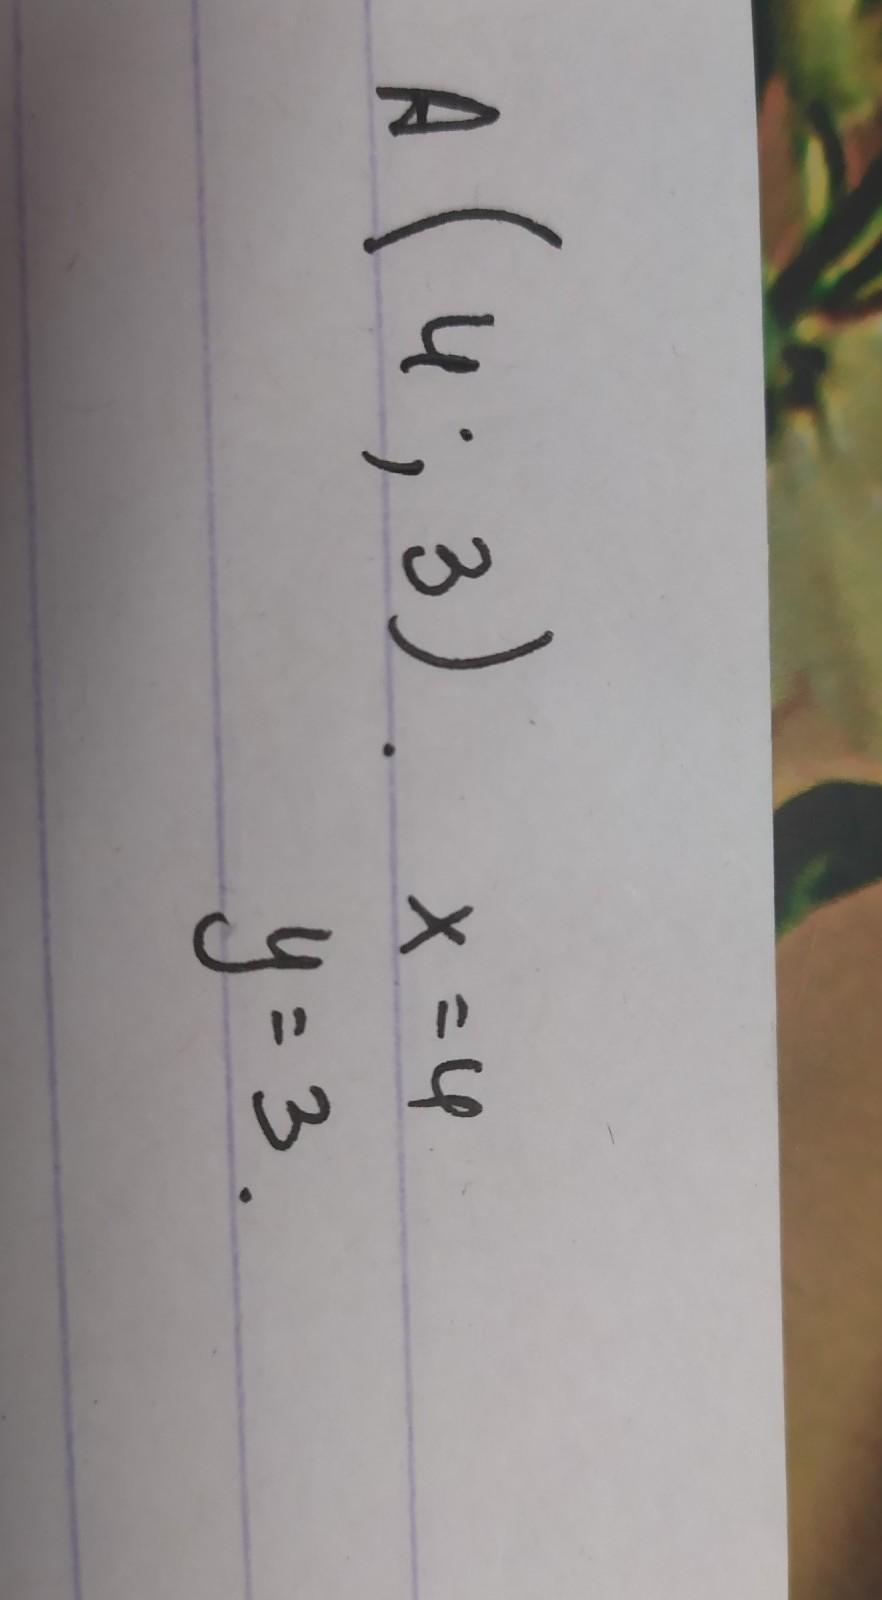 A (4; 3). x = 4
y = 3.